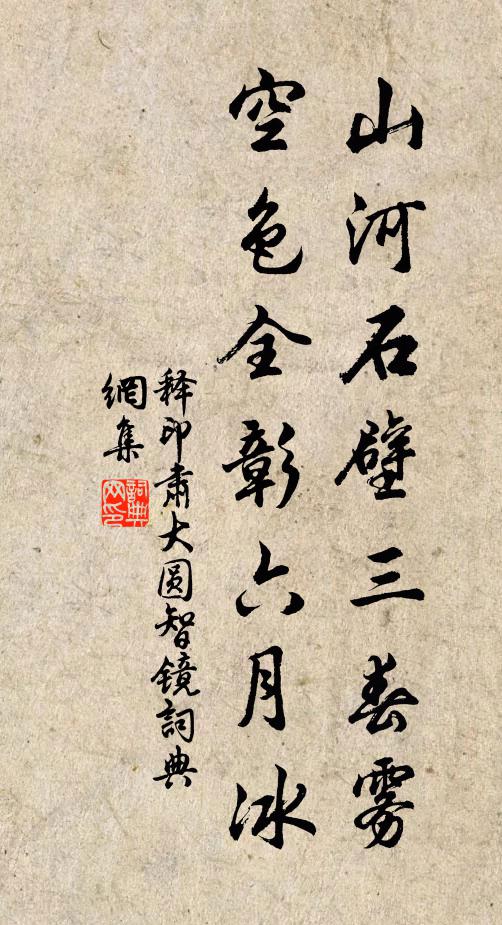 山河石壁三春雾
空色全彰六月冰
释印肃大圆智镜詞典
網集
詞典网印